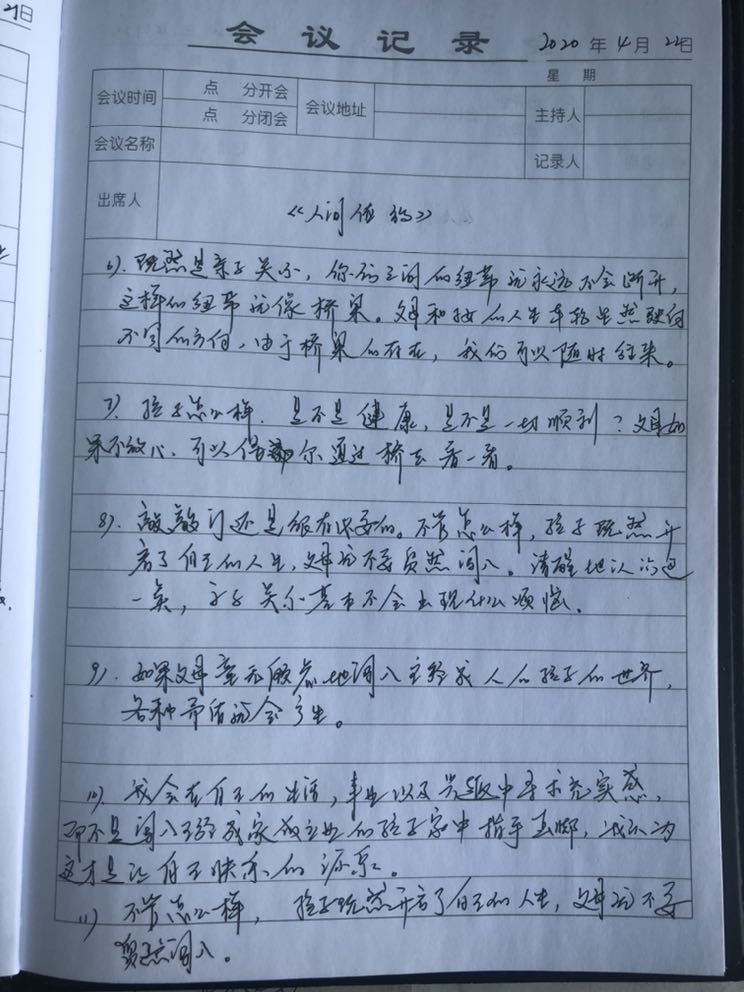 21日
会议记录 2020年4月22日
星期
会议时间 点 分开会 会议地址 主持人
点 分闭会
会议名称 记录人
出席人
《人间值得》
6). 既然是亲子关系，你们之间的纽带就永远不会断开，
这样的纽带就像桥梁。父母和孩子的人生车轮虽然驶向
不同的方向，由于桥梁的存在，我们可以随时往来。
7) 孩子怎么样，是不是健康，是不是一切顺利？父母如
果不放心，可以偶尔通过桥去看一看。
8). 敲敲门还是很有必要的。不管怎么样，孩子既然开
启了自己的人生，父母就不要贸然闯入。清醒地认识这
一点，亲子关系基本不会出现什么烦恼。
9). 如果父母毫无顾忌地闯入已经成人的孩子的世界，
各种矛盾就会产生。
10) 我会在自己的生活，事业以及兴趣中寻求充实感，
而不是闯入已经成家成立业的孩子家中指手画脚，我认为
这才是让自己快乐的源泉。
11) 不管怎么样，孩子既然开启了自己的人生，父母就不要
贸然闯入。